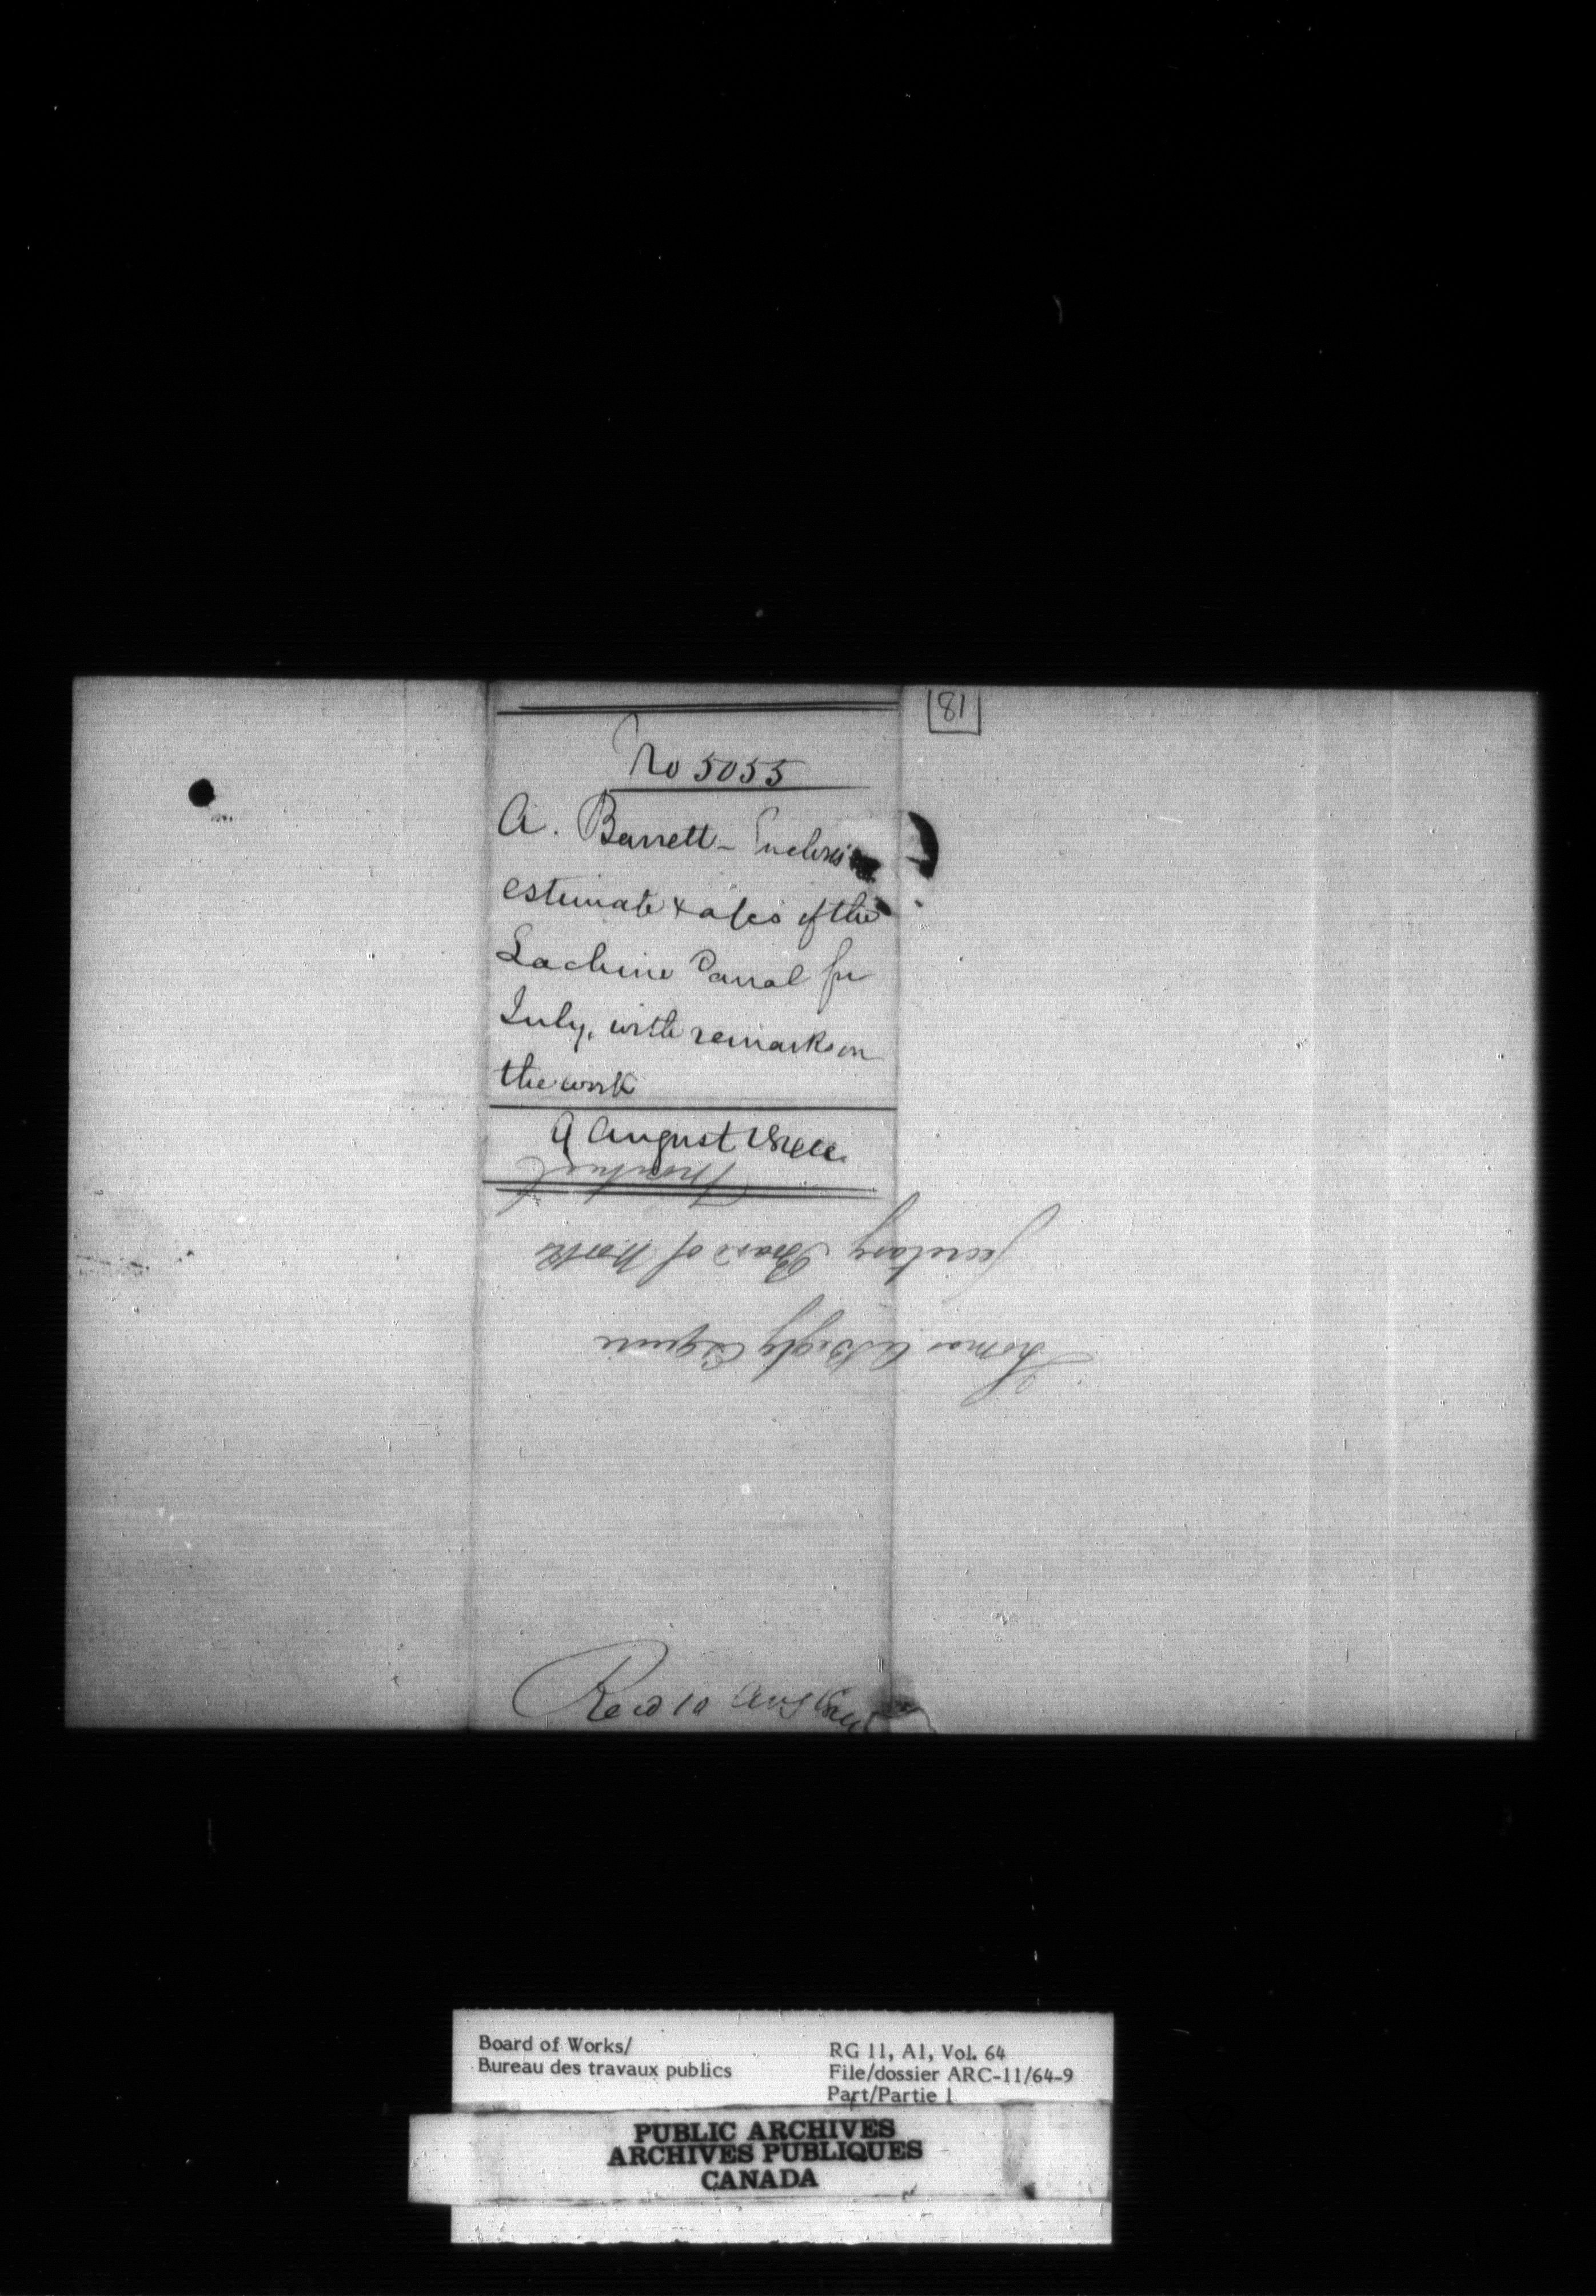 81
No 5055
A. Barrett - Enclosing
estimate & a/cs of the
Lachine Canal for
July, with remarks on
the work
9 August 1844
Thomas A Begly Esquire
Secretary Board of Works
Montreal
Recd 10 Aug 1844
Board of Works/
Bureau des travaux publics
RG 11, A1, Vol. 64
File/dossier ARC-11/64-9
Part/Partie 1
PUBLIC ARCHIVES
ARCHIVES PUBLIQUES
CANADA